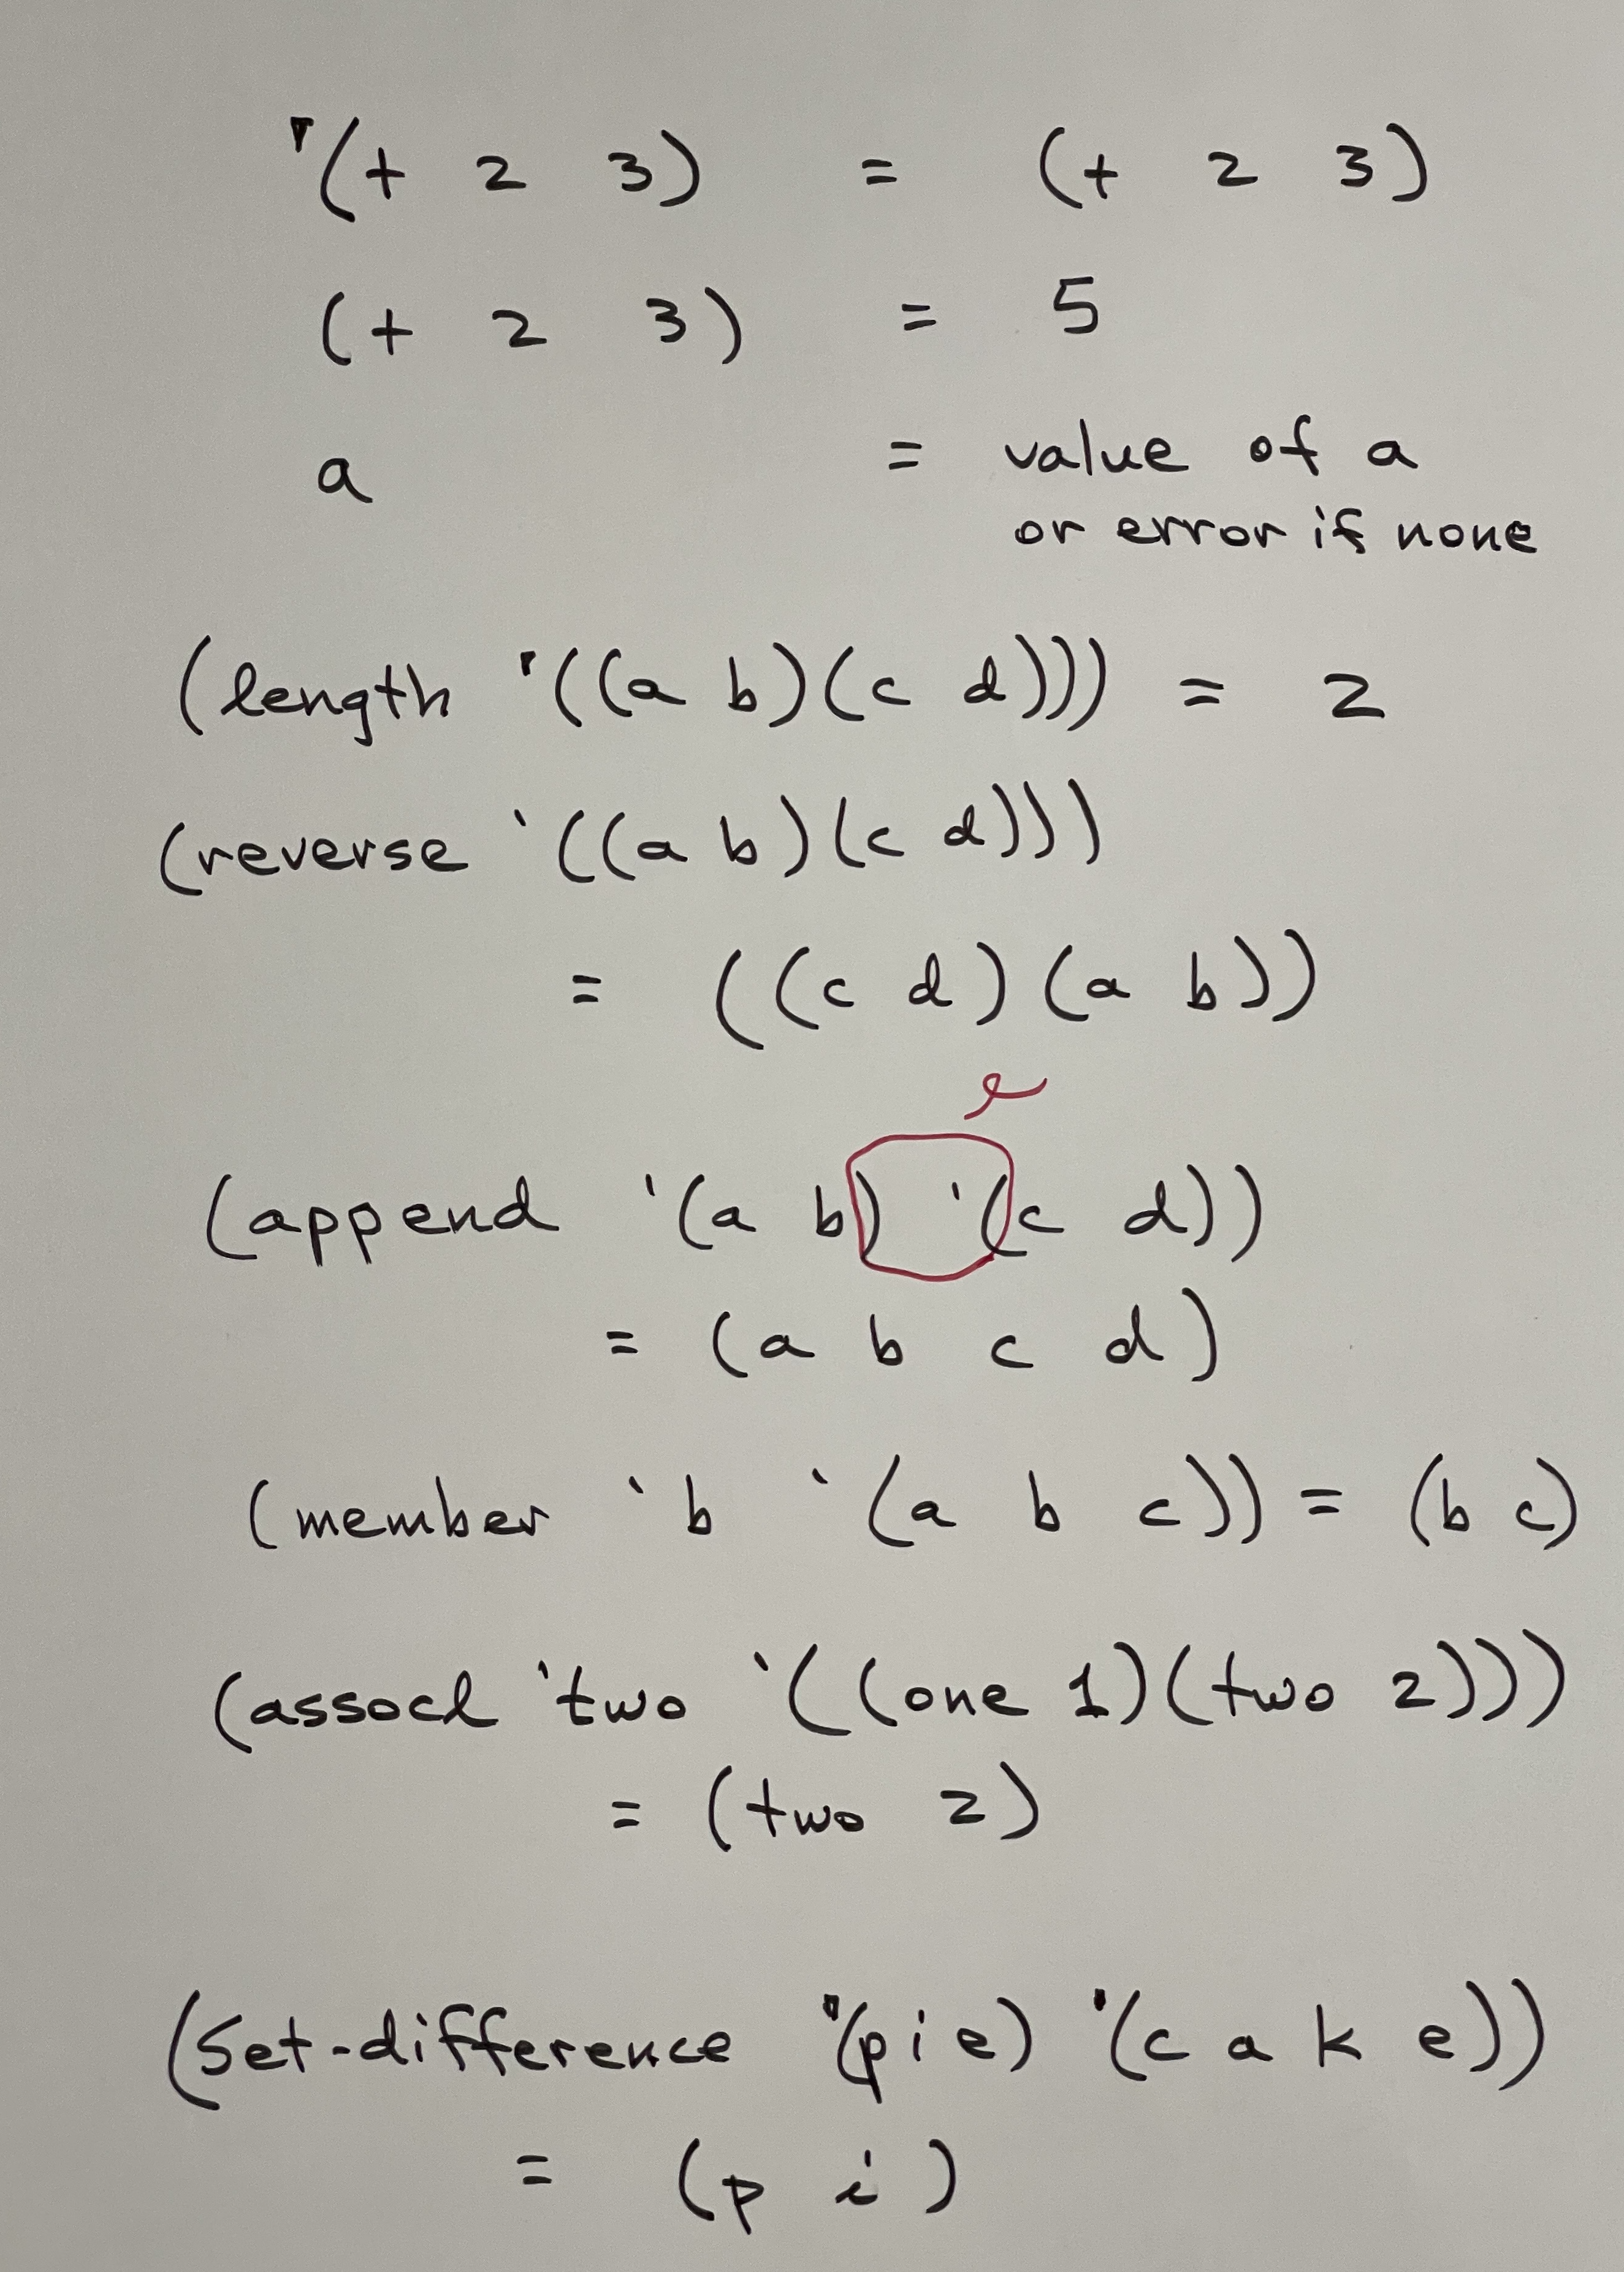 '(+ 2 3) = (+ 2 3)
(+ 2 3) = 5
a = value of a
or error if none
(length '((a b)(c d))) = 2
(reverse '((a b)(c d)))
= ((c d)(a b))
(append '(a b) '(c d))
= (a b c d)
(member 'b '(a b c)) = (b c)
(assocl 'two '((one 1)(two 2)))
= (two 2)
(Set-difference '(p i e) '(c a k e))
= (p i)